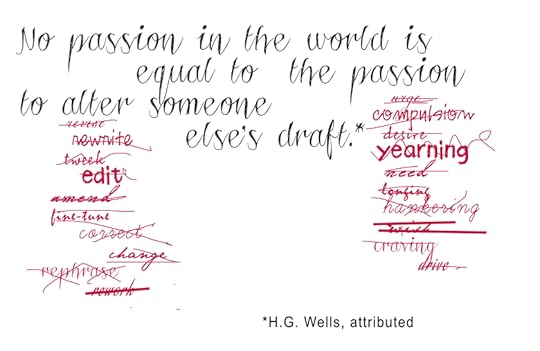 No passion in the world is
equal to the passion
to alter someone
else's draft.*
revise
rewrite
tweek
edit
amend
fine-tune
correct
change
rephrase
rework
urge
compulsion
desire
yearning
need
longing
hankering
wish
craving
drive
*H.G. Wells, attributed